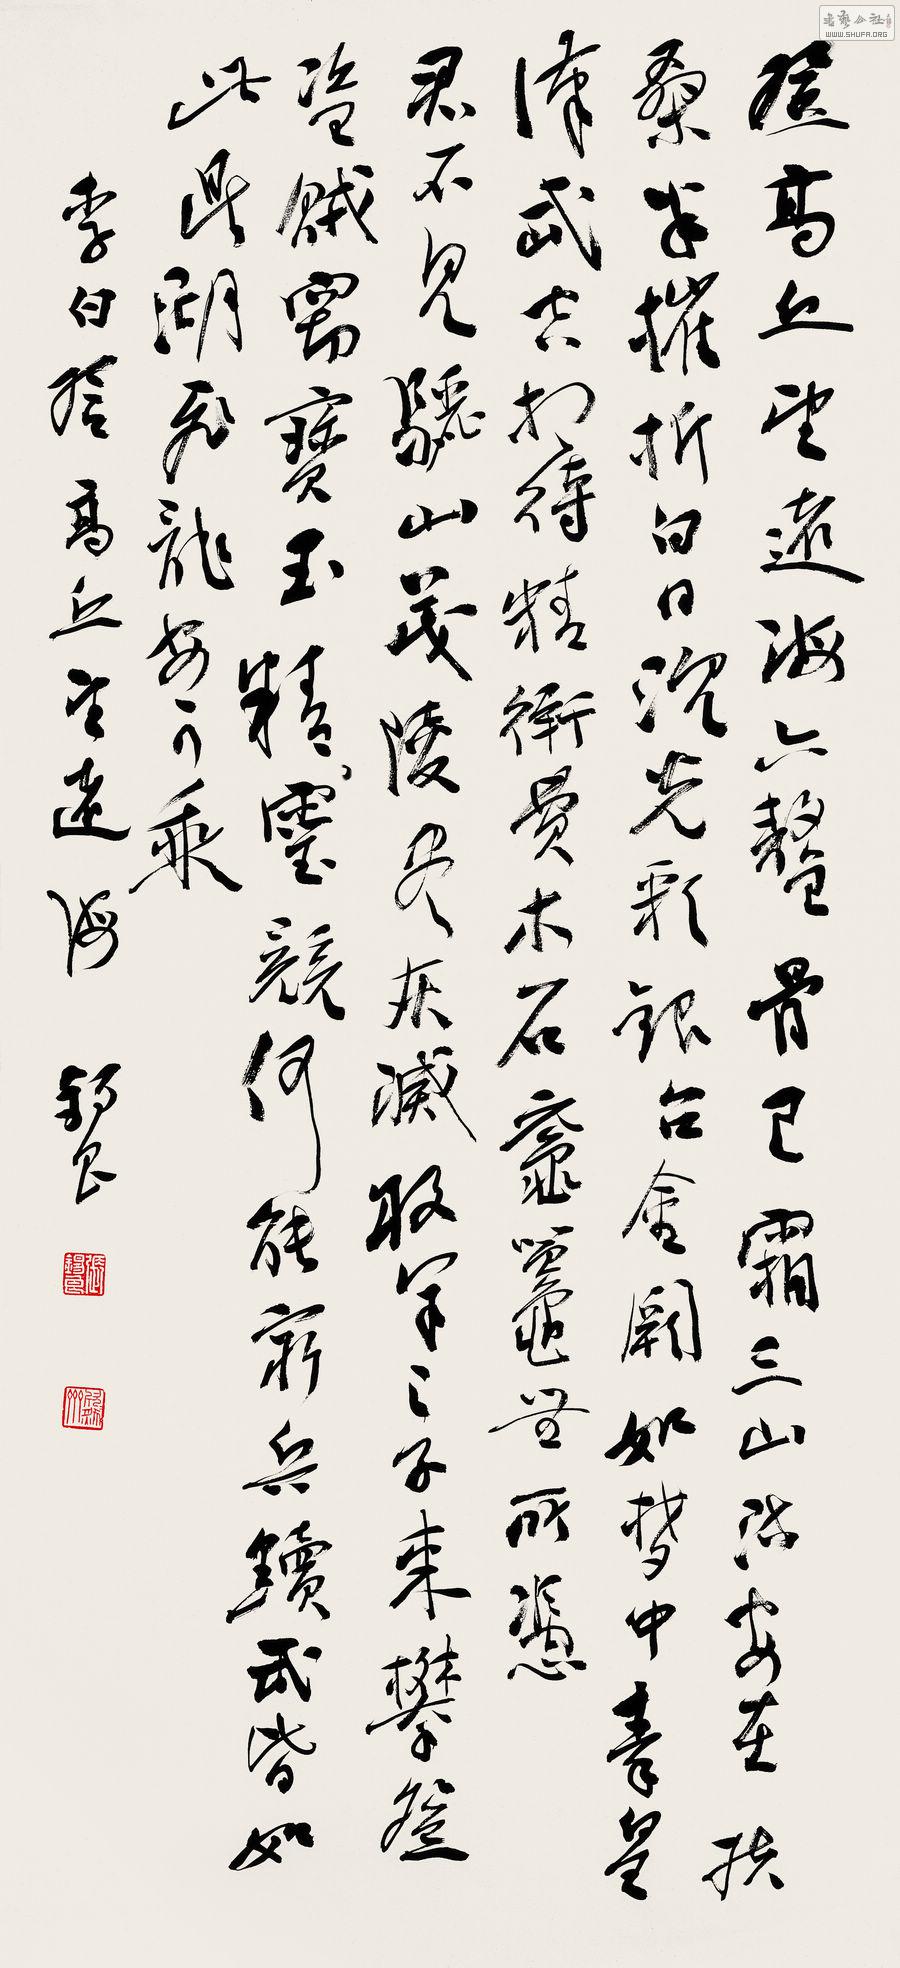 登高丘望遠海六鰲骨已霜三山流安在扶
桑半摧折白日沉光彩銀台金闕如夢中秦皇
漢武空相待精衛費木石黿鼉無所憑
君不見驪山茂陵盡灰滅牧羊之子來攀登
盜賊劫寶玉精靈競何能窮兵黷武皆如
此鼎湖飛龍安可乘
李白登高丘望遠海 錫良
張錫良
書藝公社
WWW.SHUFA.ORG